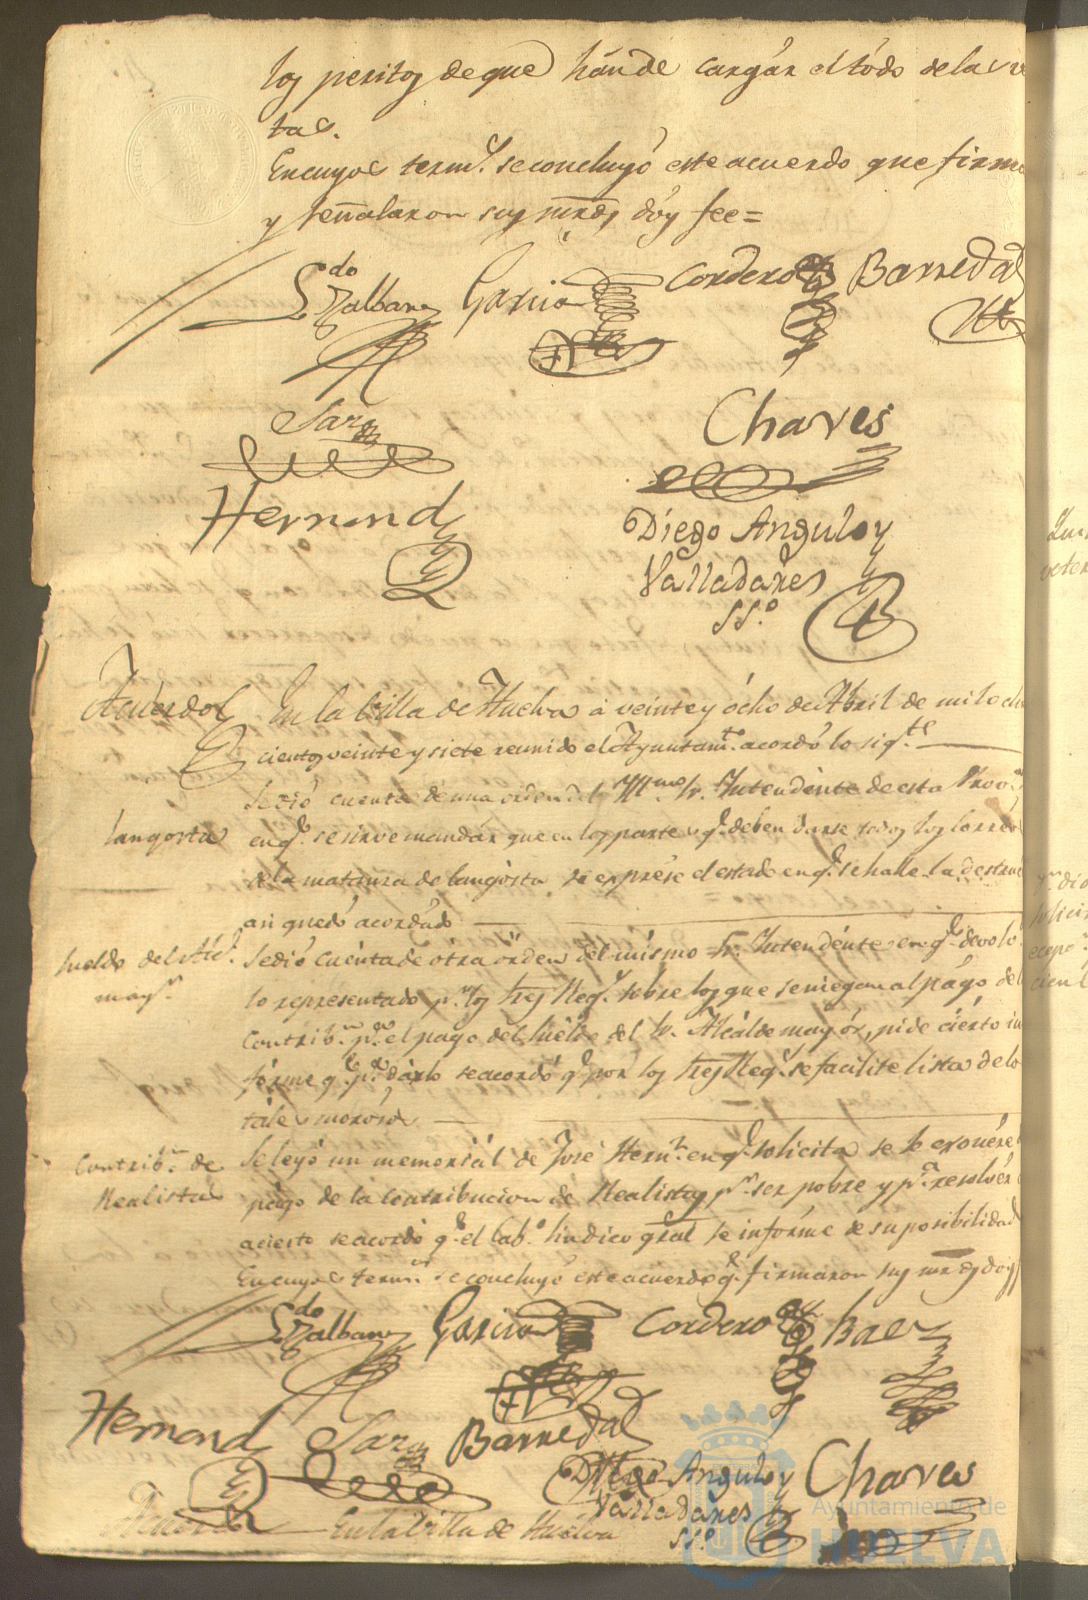 los peritos de que hán de cargár el tódo de las
tas.
En cuyos term.s se concluyó este acuerdo que firma
y señalaron sus mrds dóy fee=
L.do Garcia Cordero Barreda
Chaves
Hernand
Diego Angulo y
Valladares
SS.o
Acuerdo En la billa de Huelva á veinte y ócho de Abril de mil ocho
cientos veinte y siete reunido el Ayuntam.to acordó lo sig.te
Se dió cuenta de una orden del Yll.mo Sr. Yntendénte de esta Prov.a
langosta en q.e se sirve mandár que en los partes q.e deben darse todos los Corréos
de la matanza de langósta se exprése el estado en q.e se halle la destruc
asi quedó acordádo
Sueldo del Alc.e Se dió cuénta de ótra órden del mísmo Sr. Yntendénte en q.e
may.r lo representado p.r los tres Reg.s sobre los que se niegan al págo de
Contrib.n p.a el pago del suéldo del Sr. Alcálde mayór, pide ciérto in
fórme q.e p.a dárlo se acordó q.e pór los tres Reg.s se facilite lista de lo
táles morosos
Contrib.n de Se leyó un memoriál de José Hern.z en q.e solicita se le exonére
Realistas págo de la Contribucion de Realistas p.r ser pobre y p.a resolvér
acierto se acordó q.e el Cab.o Sindico gral se infórme de su posibilidad
En cuyos term.s se concluyó este acuerdo q.e firmaron sus mrds doy f
L.do Garcia Cordero Baez
Hernand Barreda Diego Angulo y Chaves
Valladares
SS.o
Acuerdo En la billa de Huelva
Ayuntamiento de
HUELVA